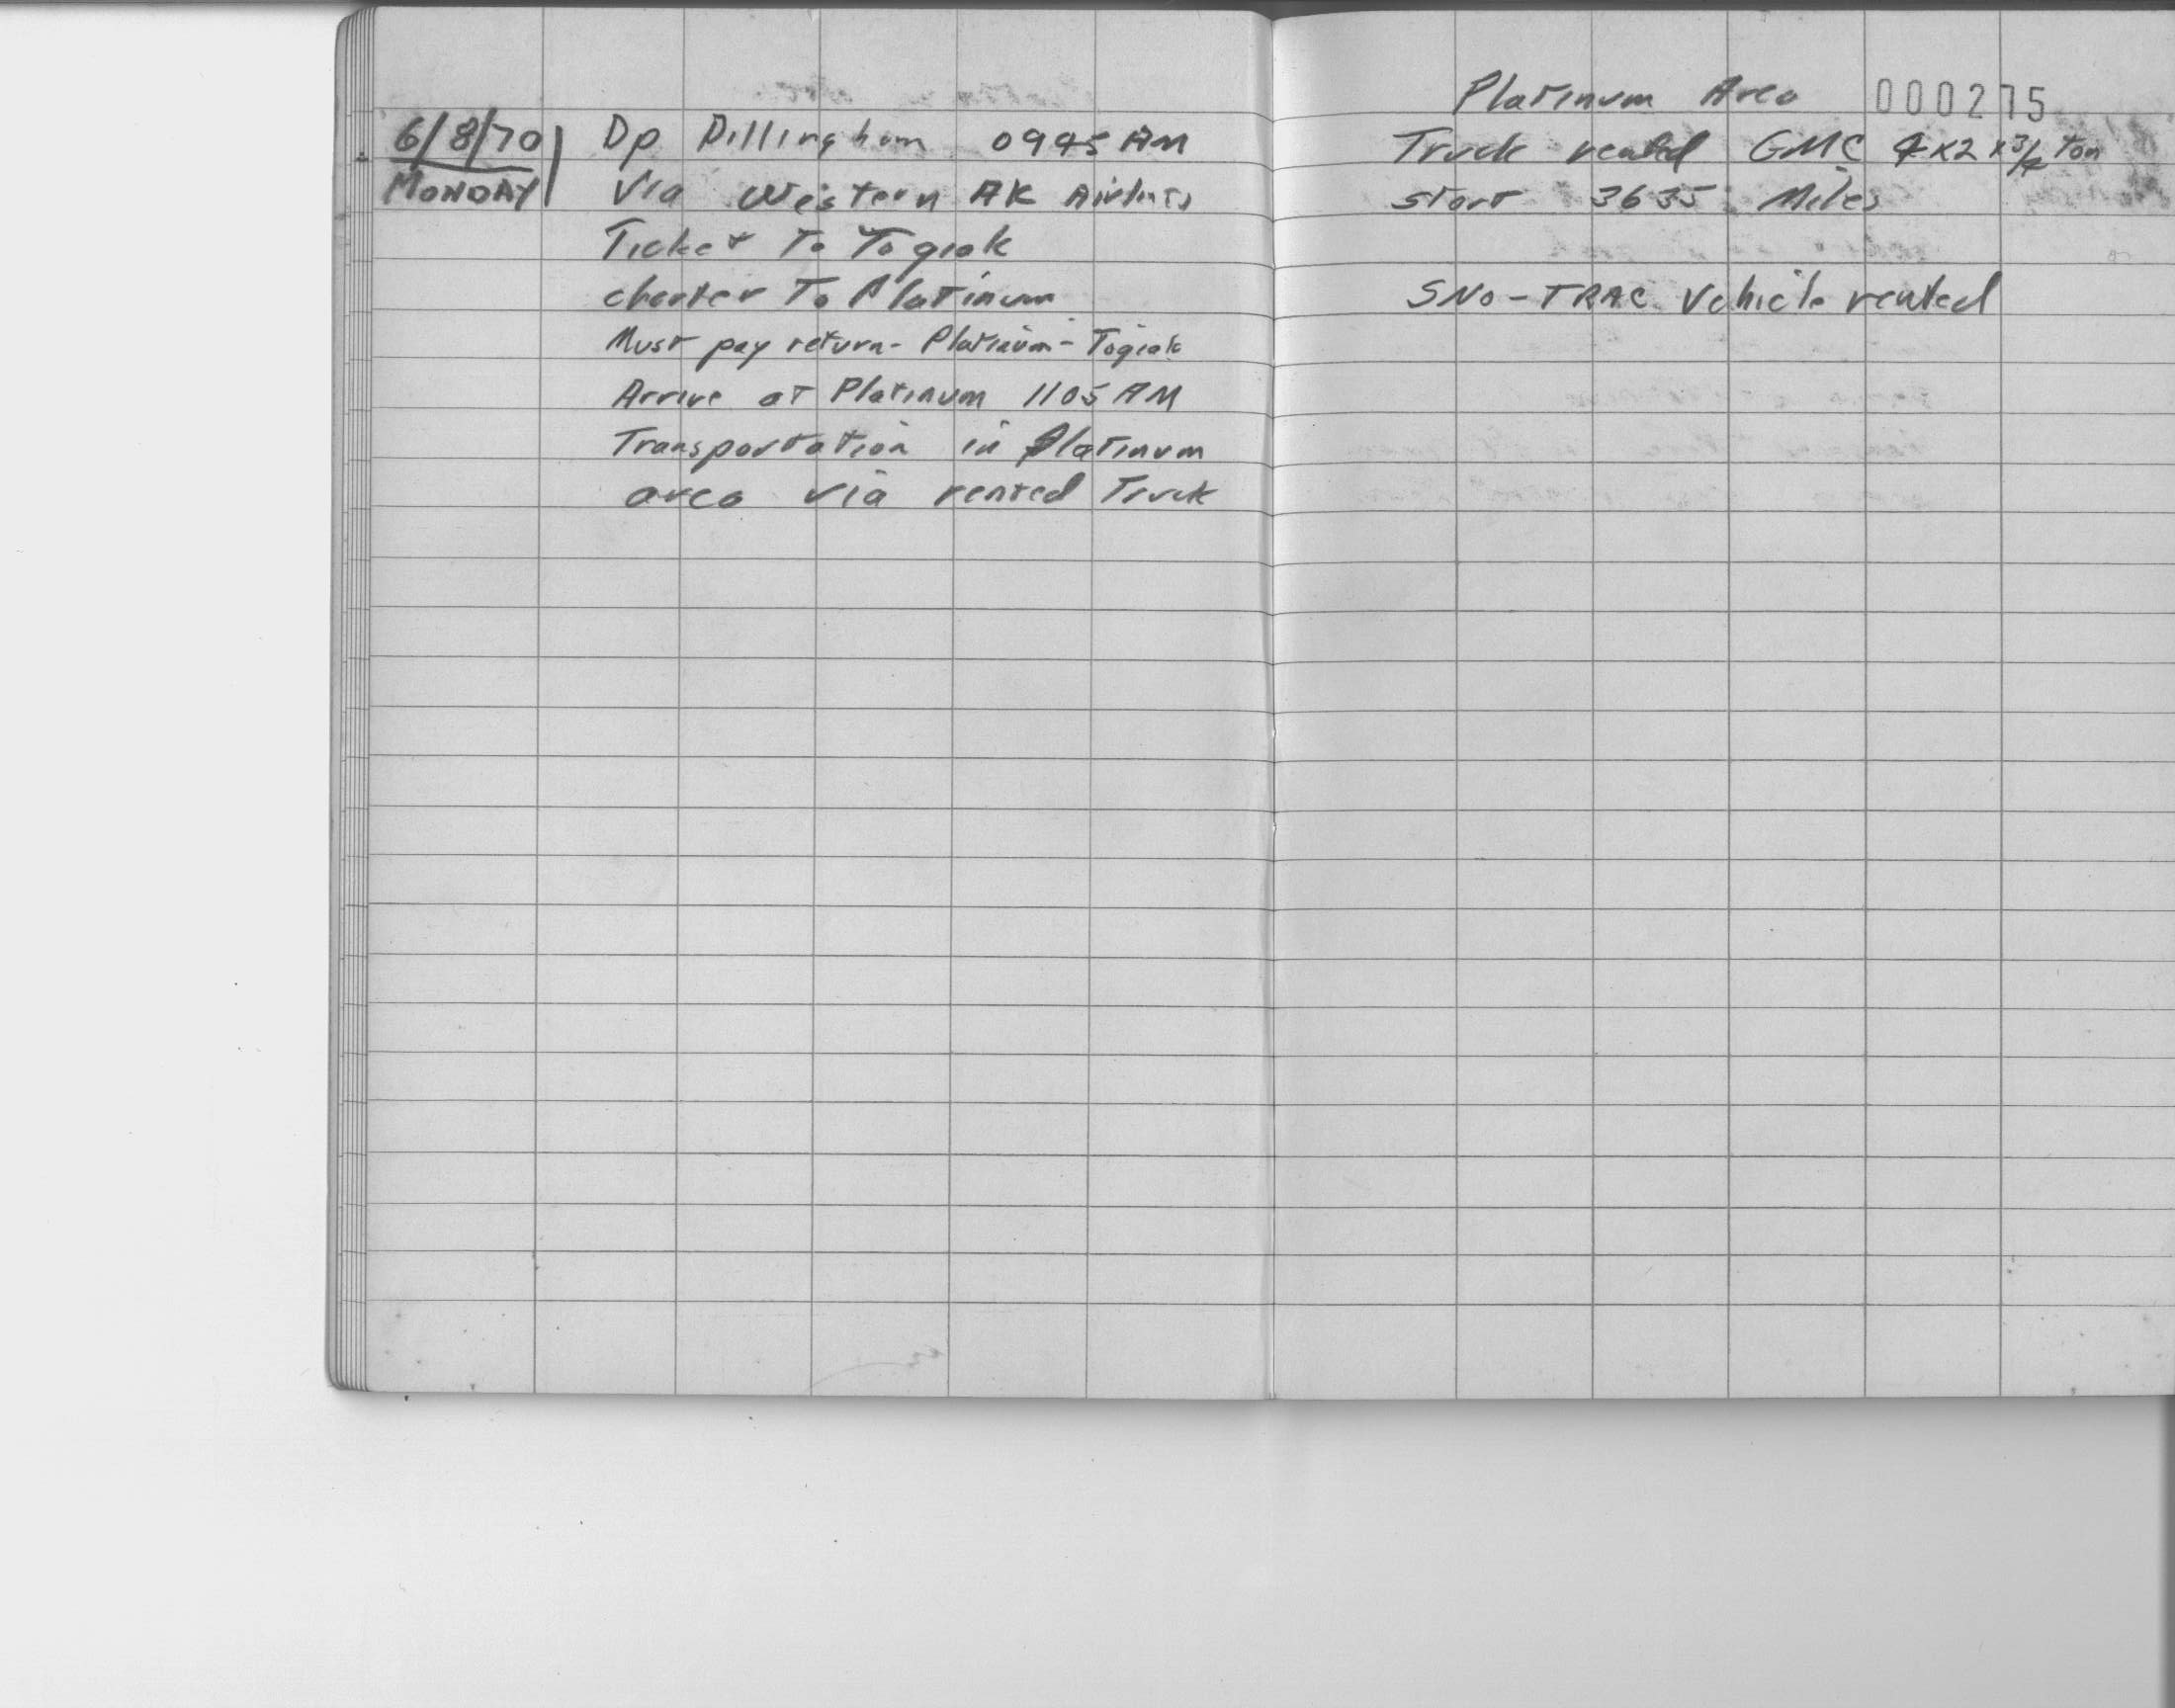 6/8/70 Dp Dillingham 0945 AM
MONDAY Via Western AK Airlines
Ticket To Togiak
charter To Platinum
Must pay return - Platinum - Togiak
Arrive at Platinum 1105 AM
Transportation in Platinum
area via rented Truck
Platinum Area 000275
Truck rented GMC 4x2 x 3/4 Ton
start 3635 Miles
SNO-TRAC Vehicle rented